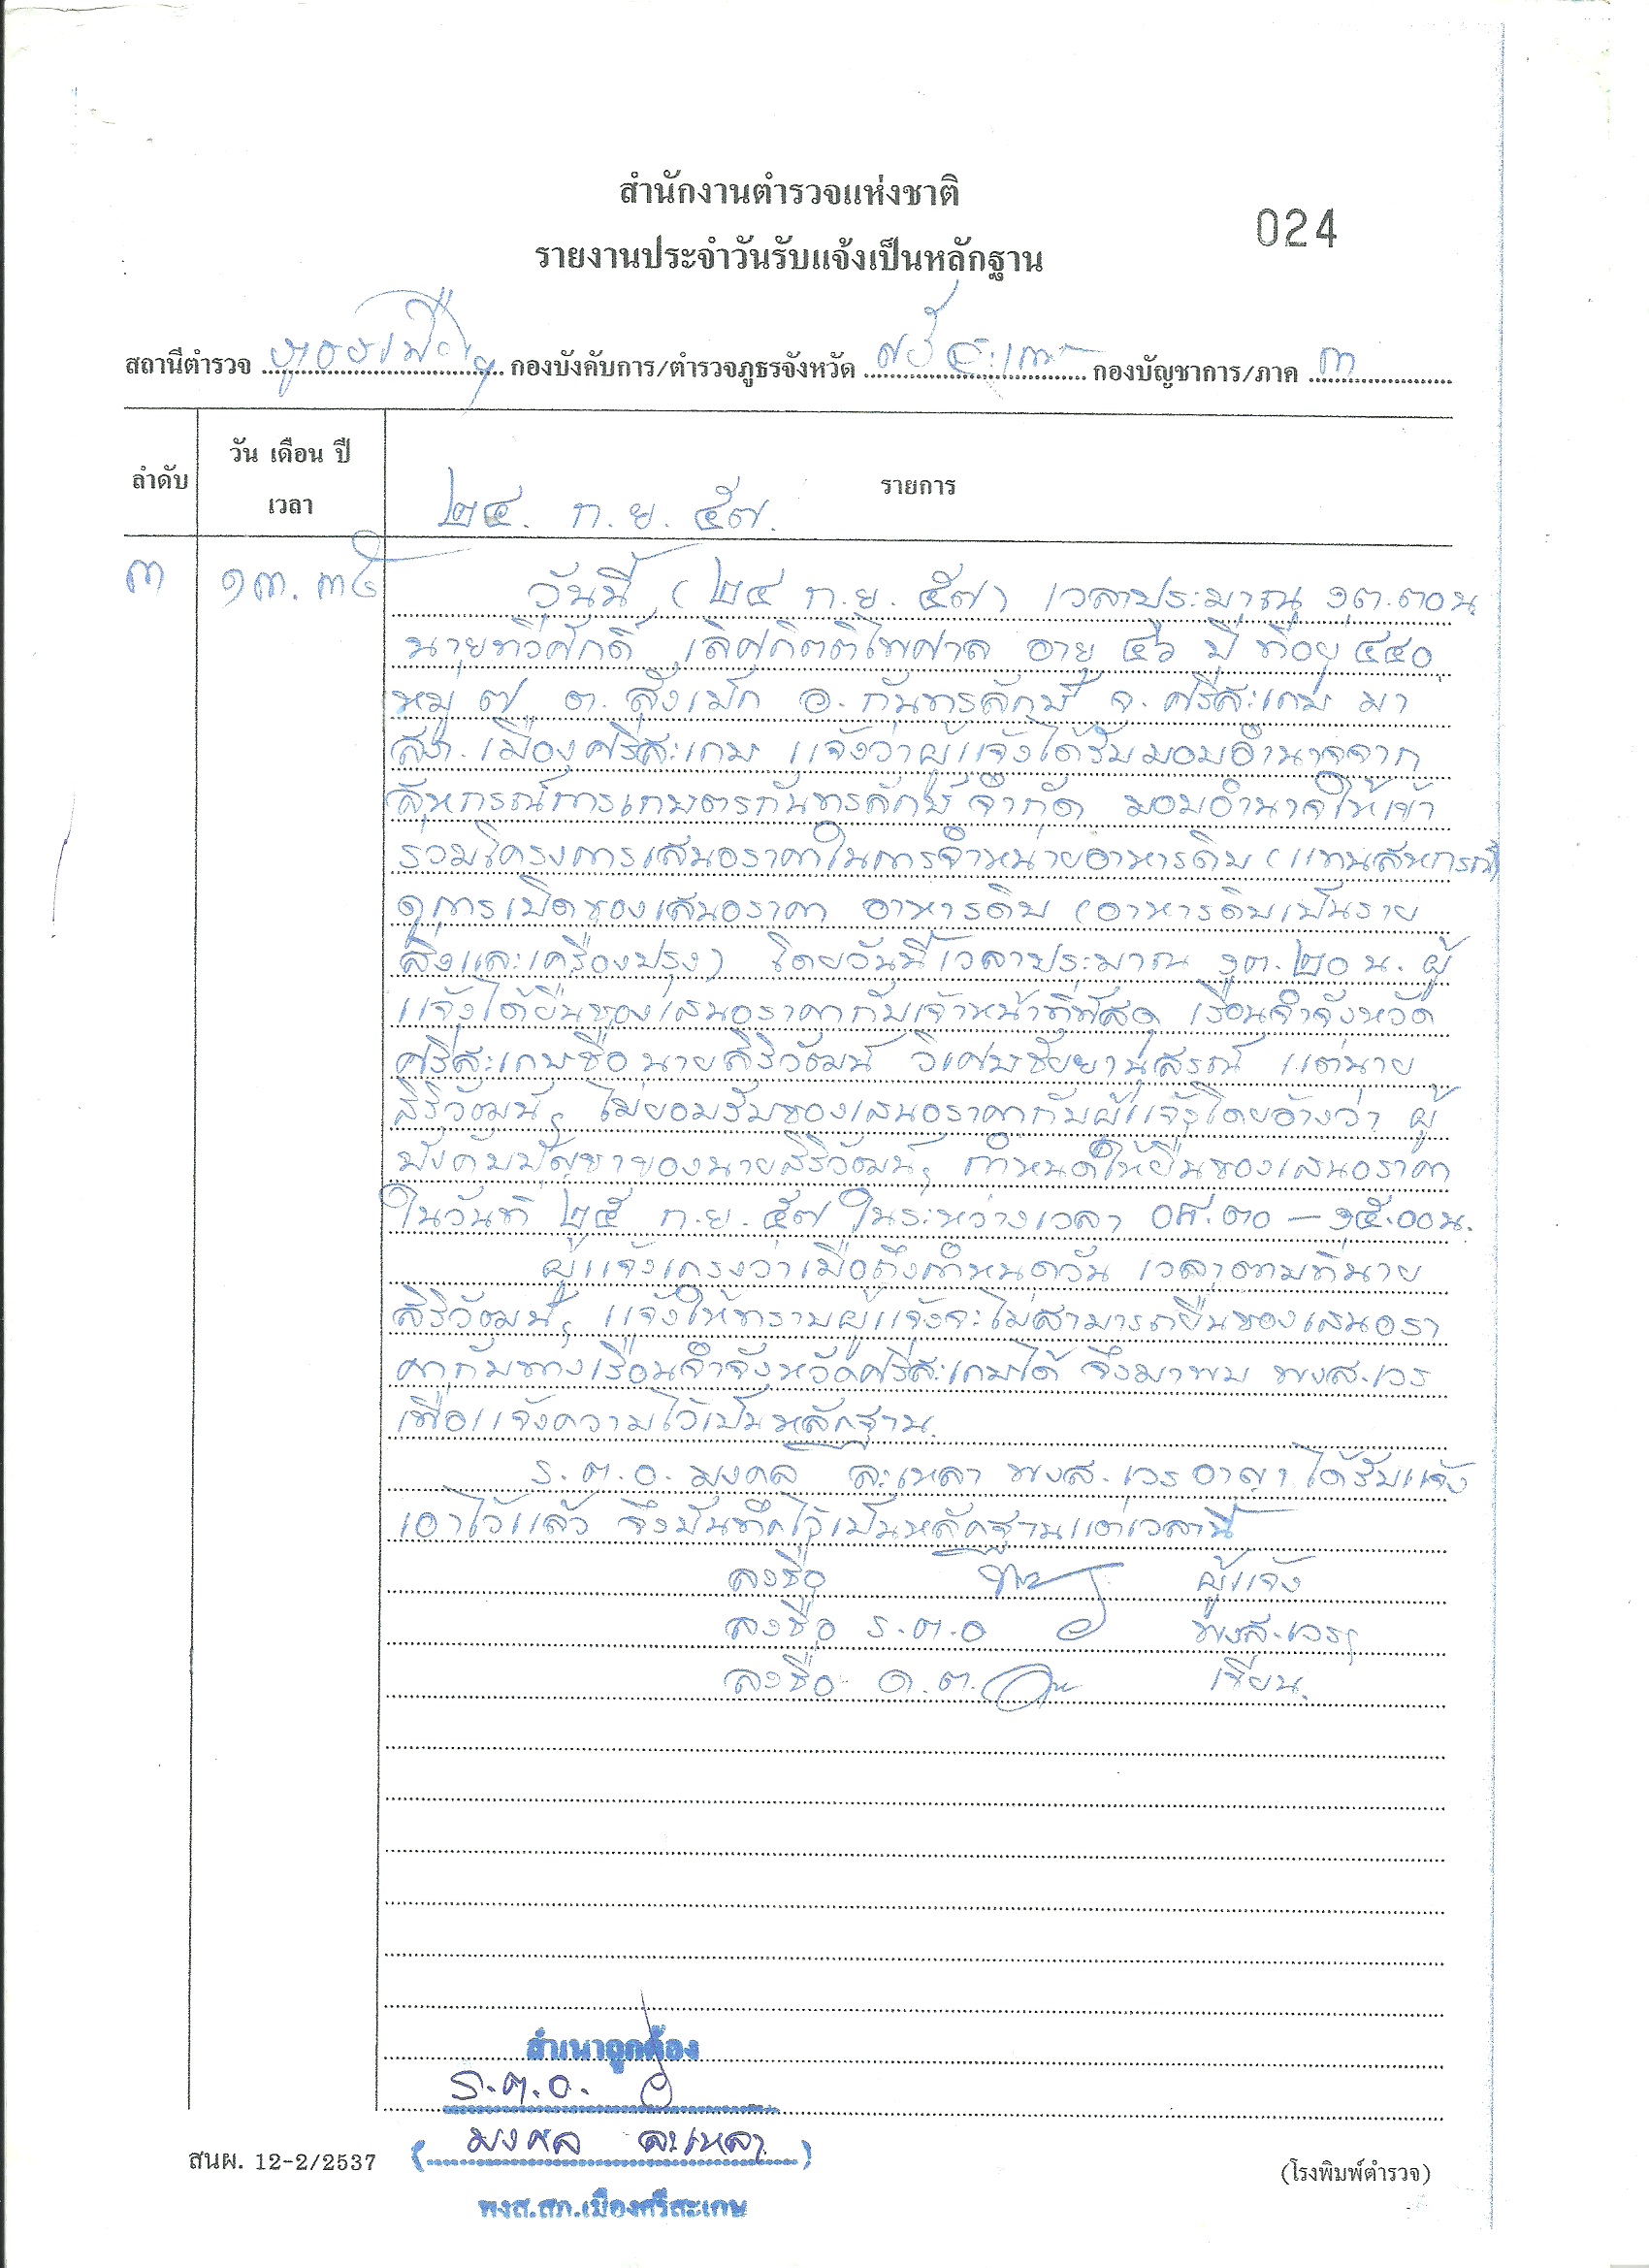 สำนักงานตำรวจแห่งชาติ
024
รายงานประจำวันรับแจ้งเป็นหลักฐาน
สถานีตำรวจ ภูธรเมือง กองบังคับการ/ตำรวจภูธรจังหวัด ศรีสะเกษ กองบัญชาการ/ภาค ๓
ลำดับ วัน เดือน ปี เวลา รายการ
๒๔. ก.ย. ๕๗.
๓ ๑๓.๓๕ วันนี้ (๒๔ ก.ย. ๕๗) เวลาประมาณ ๑๓.๓๐ น
นายทวีศักดิ์ เลิศกิตติไพศาล อายุ ๕๖ ปี ที่อยู่ ๔๔๐
หมู่ ๗ ต.สังเม็ก อ.กันทรลักษ์ จ.ศรีสะเกษ มา
สภ.เมืองศรีสะเกษ แจ้งว่าผู้แจ้งได้รับมอบอำนาจจาก
สหกรณ์การเกษตรกันทรลักษ์ จำกัด มอบอำนาจให้เข้า
ร่วมโครงการเสนอราคาในการจำหน่ายอาหารดิบ (แทนสหกรณ์)
ดูการเปิดซองเสนอราคา อาหารดิบ (อาหารดิบเป็นราย
สิ่งและเครื่องปรุง) โดยวันนี้เวลาประมาณ ๑๓.๒๐ น. ผู้
แจ้งได้ยื่นซองเสนอราคากับเจ้าหน้าที่พัสดุ เรือนจำจังหวัด
ศรีสะเกษชื่อ นายสิริวัฒน์ วิเศษชัยยานุสรณ์ แต่นาย
สิริวัฒน์ฯ ไม่ยอมรับซองเสนอราคากับผู้แจ้งโดยอ้างว่า ผู้
บังคับบัญชาของนายสิริวัฒน์ฯ กำหนดให้ยื่นซองเสนอราคา
ในวันที่ ๒๕ ก.ย. ๕๗ ในระหว่างเวลา ๐๘.๓๐ – ๑๕.๐๐ น.
ผู้แจ้งเกรงว่าเมื่อถึงกำหนดวัน เวลาตามที่นาย
สิริวัฒน์ฯ แจ้งให้ทราบผู้แจ้งจะไม่สามารถยื่นซองเสนอรา
คากับทางเรือนจำจังหวัดศรีสะเกษได้ จึงมาพบ พงส.เวร
เพื่อแจ้งความไว้เป็นหลักฐาน.
ร.ต.อ. มงคล ละเหลา พงส.เวรอาญา ได้รับแจ้ง
เอาไว้แล้ว จึงบันทึกไว้เป็นหลักฐานแต่เวลานี้
ลงชื่อ ผู้แจ้ง
ลงชื่อ ร.ต.อ พงส.เวรฯ
ลงชื่อ ด.ต. เขียน.
สำเนาถูกต้อง
ร.ต.อ.
(มงคล ละเหลา)
สนผ. 12-2/2537 (โรงพิมพ์ตำรวจ)
พงส.สภ.เมืองศรีสะเกษ